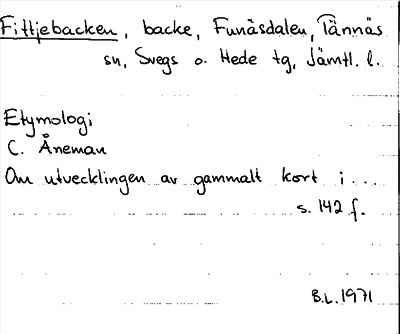 Fittjebacken, backe, Funäsdalen, Tännäs
sn, Svegs o. Hede tg, Jämtl. l.
Etymologi
C. Åneman
Om utvecklingen av gammalt kort i...
s. 142 f.
B.L. 1971